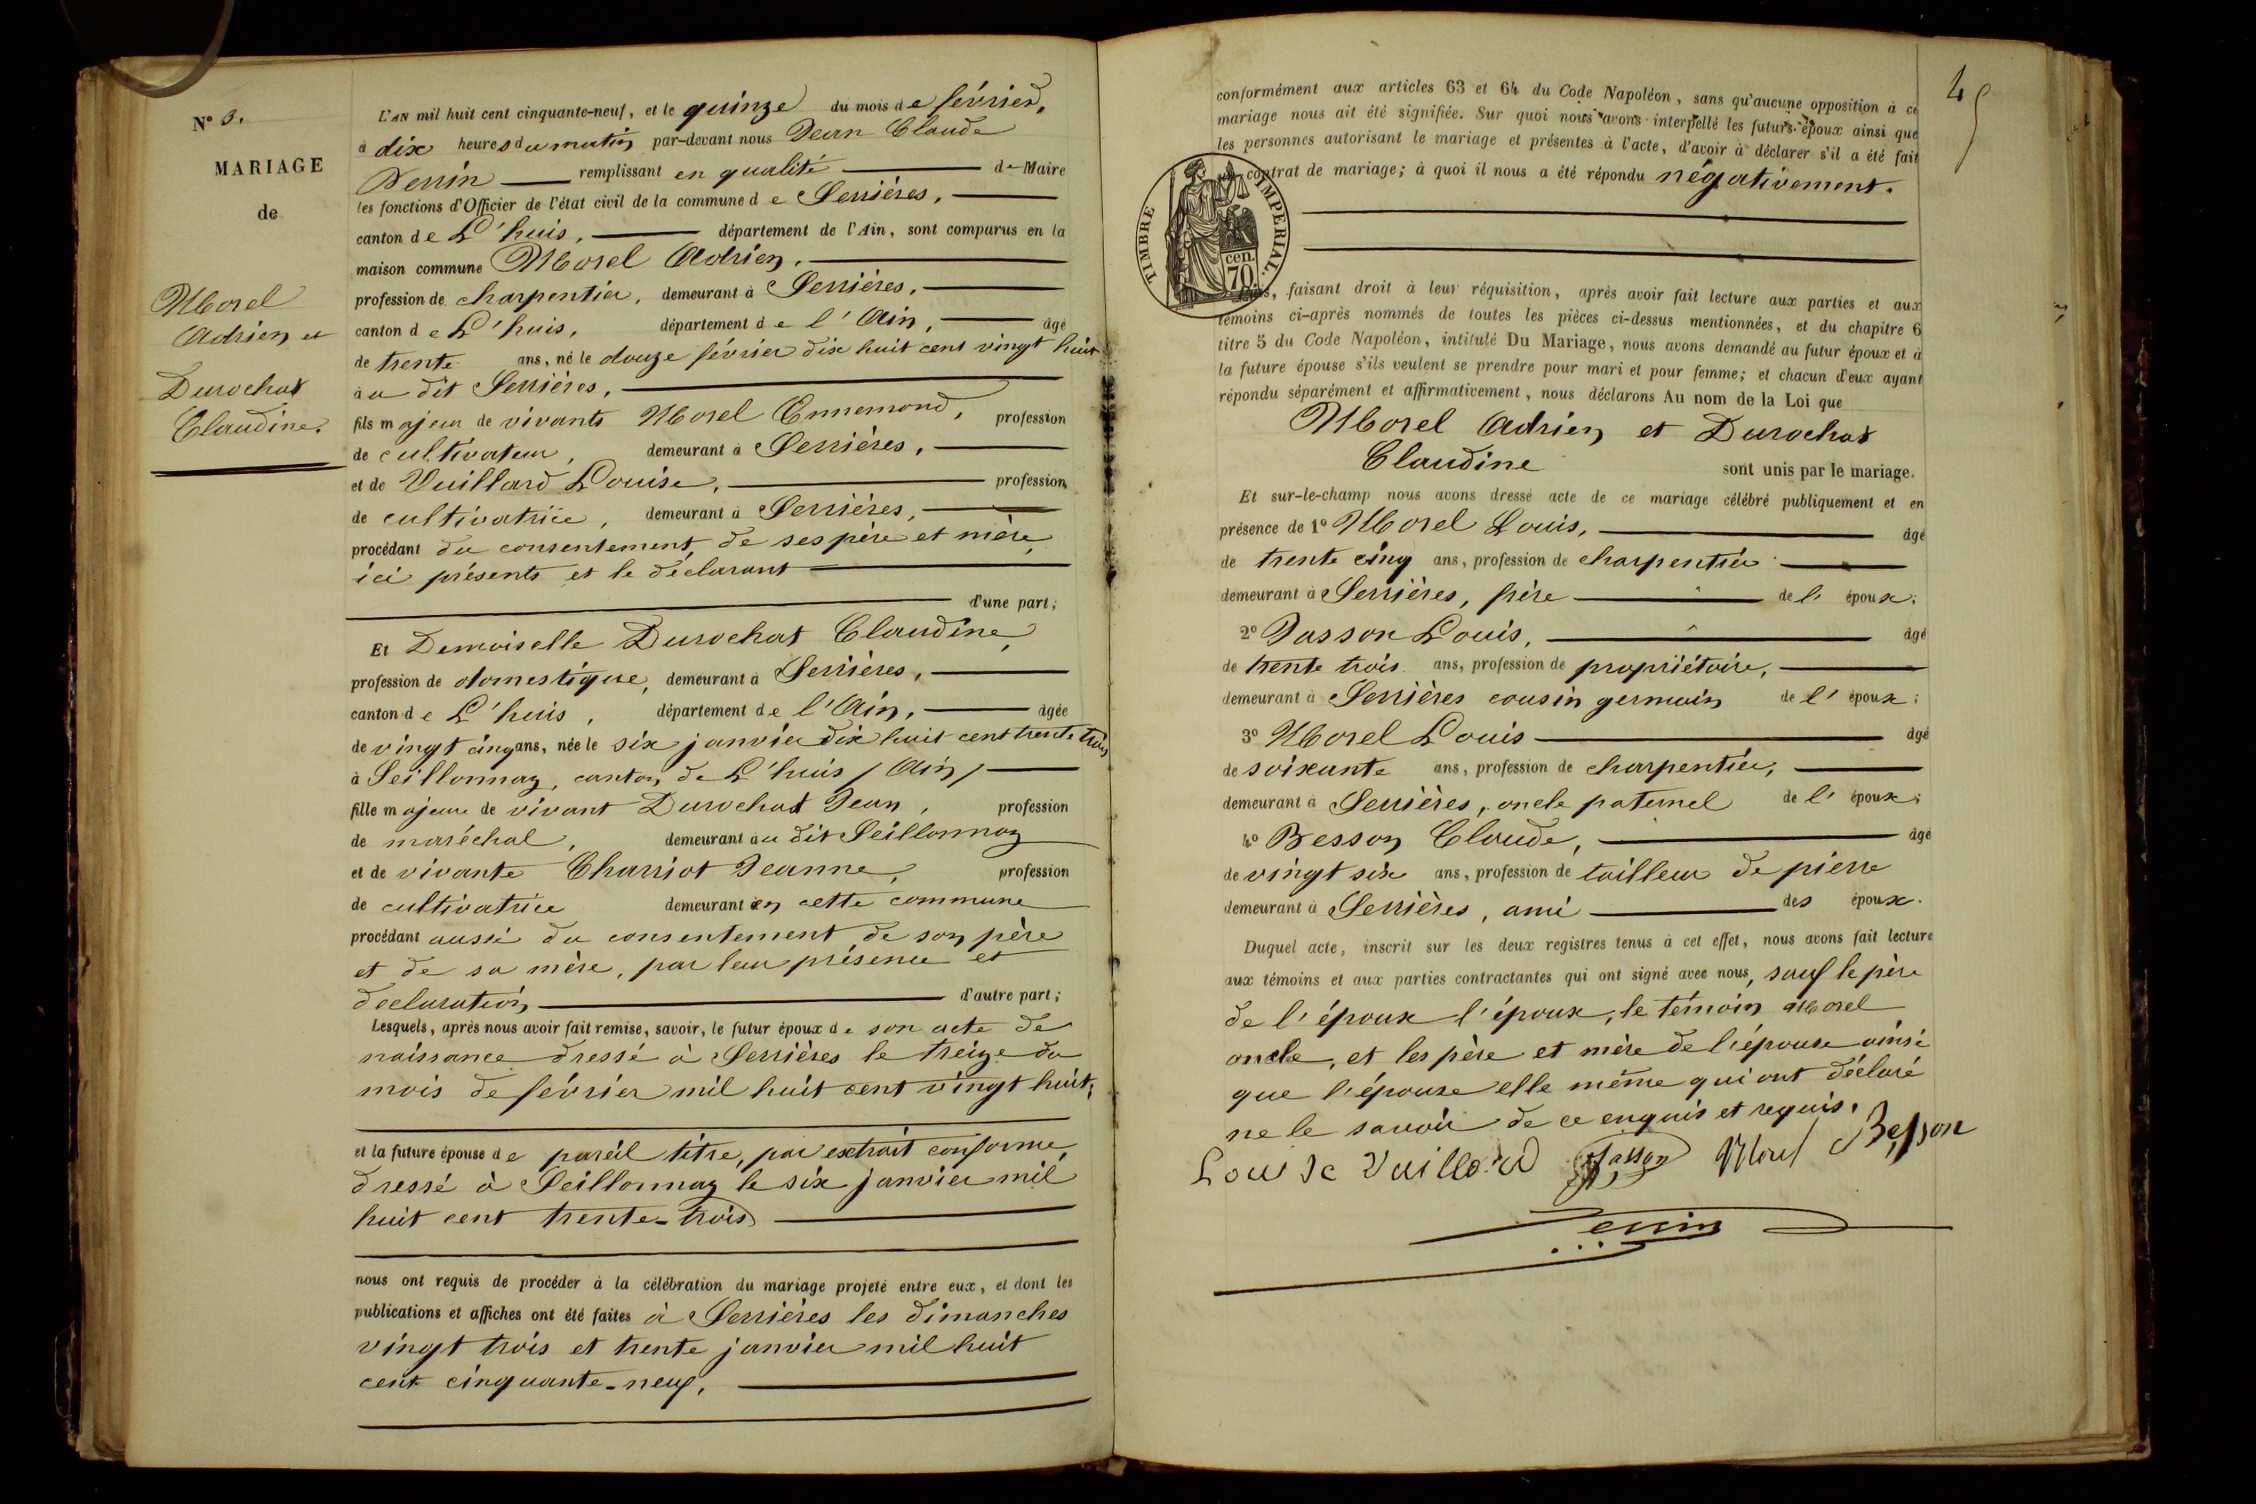 N° 3.
MARIAGE
de
Morel
Adrien et
Durochat
Claudine.
L'AN mil huit cent cinquante-neuf, et le quinze du mois de février,
à dix heures du matin par-devant nous Jean Claude
Perrin remplissant en qualité de Maire
les fonctions d'Officier de l'état civil de la commune de Serrières,
canton de L'huis, département de l'Ain, sont comparus en la
maison commune Morel Adrien,
profession de charpentier, demeurant à Serrières,
canton de L'huis, département de l'Ain, âgé
de trente ans, né le douze février dix huit cent vingt huit
à u dit Serrières,
fils majeur de vivants Morel Ennemond, profession
de cultivateur, demeurant à Serrières,
et de Vuillard Louise, profession
de cultivatrice, demeurant à Serrières,
procédant du consentement de ses père et mère,
ici présents et le déclarant
d'une part;
Et Demoiselle Durochat Claudine,
profession de domestique, demeurant à Serrières,
canton de L'huis, département de l'Ain, âgée
de vingt cinq ans, née le six janvier dix huit cent trente trois
à Seillonnaz, canton de L'huis / Ain /
fille majeure de vivant Durochat Jean, profession
de maréchal, demeurant au dit Seillonnaz
et de vivante Charriot Jeanne, profession
de cultivatrice demeurant en cette commune
procédant aussi du consentement de son père
et de sa mère, par leur présence et
declaration d'autre part;
Lesquels, après nous avoir fait remise, savoir, le futur époux de son acte de
naissance dressé à Serrières le treize du
mois de février mil huit cent vingt huit;
et la future épouse de pareil titre, par extrait conforme,
dressé à Seillonnaz le six janvier mil
huit cent trente-trois
nous ont requis de procéder à la célébration du mariage projeté entre eux, et dont les
publications et affiches ont été faites à Serrières les dimanches
vingt trois et trente janvier mil huit
cent cinquante-neuf,
conformément aux articles 63 et 64 du Code Napoléon, sans qu'aucune opposition à ce
mariage nous ait été signifiée. Sur quoi nous avons interpellé les futurs époux ainsi que
les personnes autorisant le mariage et présentes à l'acte, d'avoir à déclarer s'il a été fait
contrat de mariage; à quoi il nous a été répondu négativement.
TIMBRE IMPERIAL.
70 cen.
faisant droit à leur réquisition, après avoir fait lecture aux parties et aux
témoins ci-après nommés de toutes les pièces ci-dessus mentionnées, et du chapitre 6
titre 5 du Code Napoléon, intitulé Du Mariage, nous avons demandé au futur époux et à
la future épouse s'ils veulent se prendre pour mari et pour femme; et chacun d'eux ayant
répondu séparément et affirmativement, nous déclarons Au nom de la Loi que
Morel Adrien et Durochat
Claudine sont unis par le mariage.
Et sur-le-champ nous avons dressé acte de ce mariage célébré publiquement et en
présence de 1° Morel Louis, âgé
de trente cinq ans, profession de charpentier
demeurant à Serrières, frère de l'époux;
2° Jasson Louis, âgé
de trente trois ans, profession de propriétaire,
demeurant à Serrières cousin germain de l'époux;
3° Morel Louis âgé
de soixante ans, profession de charpentier,
demeurant à Serrières, oncle paternel de l'époux;
4° Besson Claude, âgé
de vingt six ans, profession de tailleur de pierre
demeurant à Serrières, ami des époux.
Duquel acte, inscrit sur les deux registres tenus à cet effet, nous avons fait lecture
aux témoins et aux parties contractantes qui ont signé avec nous, sauf le père
de l'époux l'époux, le témoin Morel
oncle, et les père et mère de l'épouse ainsi
que l'épouse elle même qui ont déclaré
ne le savoir de ce enquis et requis.
Louise Vuillard Jasson Morel Besson
Perrin